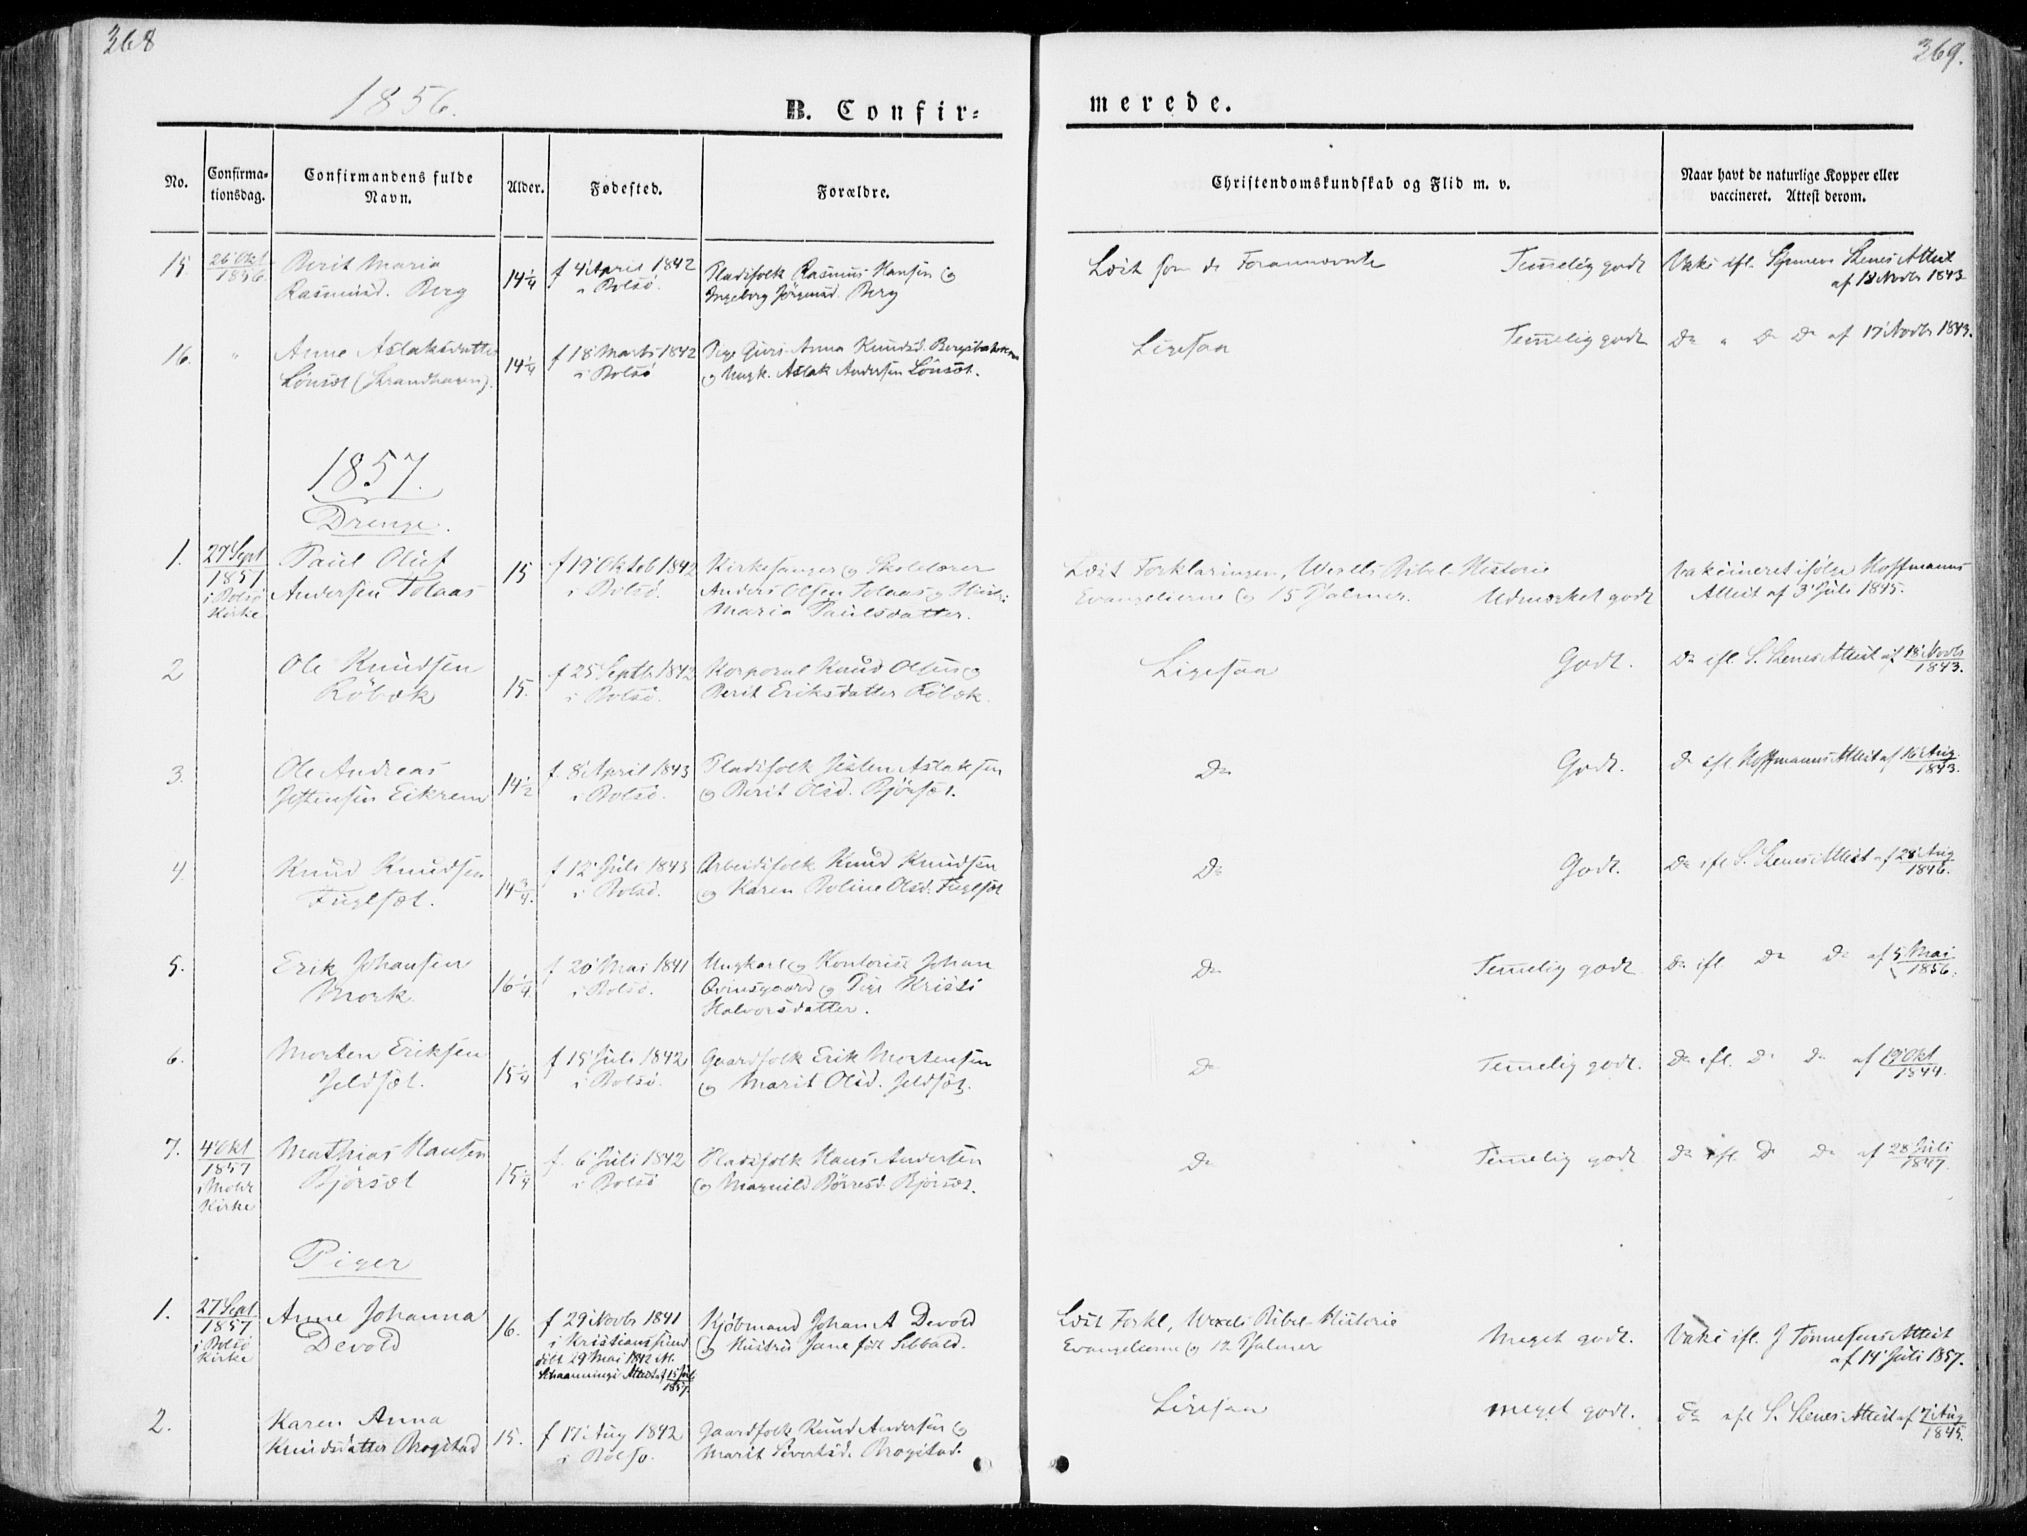 368
369.
1856.
B. Confir=
merede.
No.
Confirma=
tionsdag.
Confirmandens fulde
Navn.
Alder.
Fødested.
Forældre.
Christendomskundskab og Flid m. v.
Naar havt de naturlige Kopper eller
vaccineret. Attest derom.
15 26 Okt Berit Maria 14¼ f 4 April 1842 Pladsfolk Rasmus Hansen og Læst som de Forannævnte Temelig godt Vaks ifl. Skenes Attest
1856 Rasmusd. Berg i Bolsø. Ingeborg Jørgensd. Berg af 18 Novbr 1843
16. " Anne Aslaksdatter 14¼ f 18 Marts 1842 Pige Anna Knudsd. Ligesaa Temelig godt Do " Do Do af 17 Novbr 1843.
Lønset (Strandhaven). i Bolsø og Ungk. Aslak Andersen Lønset.
1857.
Drenge.
1. 27 Sept Paul Oluf 15 f 19 Okteb 1842 Kirkesanger og Skolelærer Læst Forklaringen, Wexels Bibel-Historie Vakcineret ifølge Hoffmanns
1857 Andersen Tolaas i Bolsø. Anders Olsen Tolaas og Hustr: Evangelierne og 15 Psalmer. Udmærket godt Attest af 3 Juli 1845.
i Bolsø
Kirke Maria Paulsdatter.
2 Ole Knudsen 15. f 25 Septb 1842 Korporal Knud Olsen og Ligesaa Godt. Do ifl. S. Skenes Attest af 18 Novbr
Røbæk i Bolsø. Berit Eriksdatter Røbæk. 1843.
3. Ole Andreas 14½ f. 8 April 1843 Pladsfolk Jetten Aslaksen Do Godt. Do ifl. Hoffmanns Attest af 16 Aug.
Jettensen Eikrem i Bolsø. og Berit Olsd. Bjørset. 1843.
4. Knud Knudsen 14¾. f 12 Juli 1843 Arbeidsfolk Knud Knudsen Do Godt. Do ifl S. Skenes Attest af 28 Aug
Fuglset. i Bolsø. og Karen Boline Olsd. Fuglset 1846.
5. Erik Johansen 16¼ f 20 Mai 1841 Ungkarl og Kontorist Johan Do Temelig godt Do ifl. Do Do af 5 Mai
Mork i Bolsø. og Pige Kristi 1856.
Halvorsdatter.
6. Morten Eriksen 15¼ f 15 Juli 1842 Gaardfolk Erik Mortensen Do Temelig godt. Do ifl. Do Do af 19 Okt
Jeldset. i Bolsø. og Marit Olsd. Jeldset. 1844.
7. 4 Okt Mathias Hansen 15¼ f. 6 Juli 1842 Pladsfolk Hans Andersen Do Temelig godt Do ifl. Do Do af 28 Juli
1857 Bjørset i Bolsø og Magnild Børresd. Bjørset. 1847.
i
Kirke
Piger
1. 27 Sept Anne Johanna 16. f 29 Novbr 1841 Kjøbmand Johan A Devold Læst Forkl, Wexels Bibel-Historie Meget godt. Vaks ifl. J Tønnesens Attest
1857 Devold i Kristianssund og Hustru Jane født Sibbald. Evangelierne og 12 Psalmer af 14 Juli 1857.
i Bolsø
Kirke døbt 29 Mai 1842
Attest af 15 Juli
1857.
2. Karen Anna 15. f 17 Aug 1842 Gaardfolk Knud Andersen og Ligesaa meget godt. Do ifl S. Skenes Attest af 7 Aug
Knudsdatter Brogstad i Bolsø. Marit Sivertsd. Brogstad. 1845.